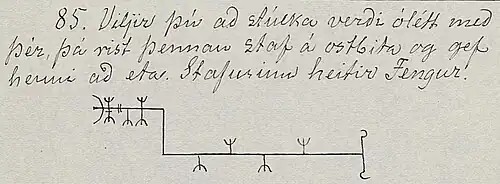 85. Viljir þú ad stúlka verdi ólétt med
þér, þá rist þennan staf á ostbita og gef
henni ad eta. Stafurinn heitir Fengur.